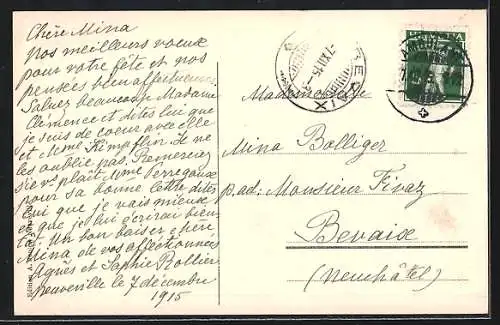 Chère Mina
Nos meilleurs voeux
pour votre fête et nos
pensées bien affectueuses
Saluez beaucoup Madame
Clémence et dites lui que
je suis de coeur avec elle
et Mme Kimpflin. Je ne
les oublie pas. Remerciez
s'il v. plaît Mme Perregaux
pour sa bonne lettre dites
lui que je vais mieux
et que je lui écrirai bien
tôt. Un bon baiser chère
Mina de vos affectionnées
Agnès et Sophie Rollier
Neuveville le 7 décembre
1915
Mademoiselle
Mina Bolliger
p. ad: Monsieur Tivaz
Bevaix
(Neuchâtel)
HELVETIA
BEVAIX
7.XII.15